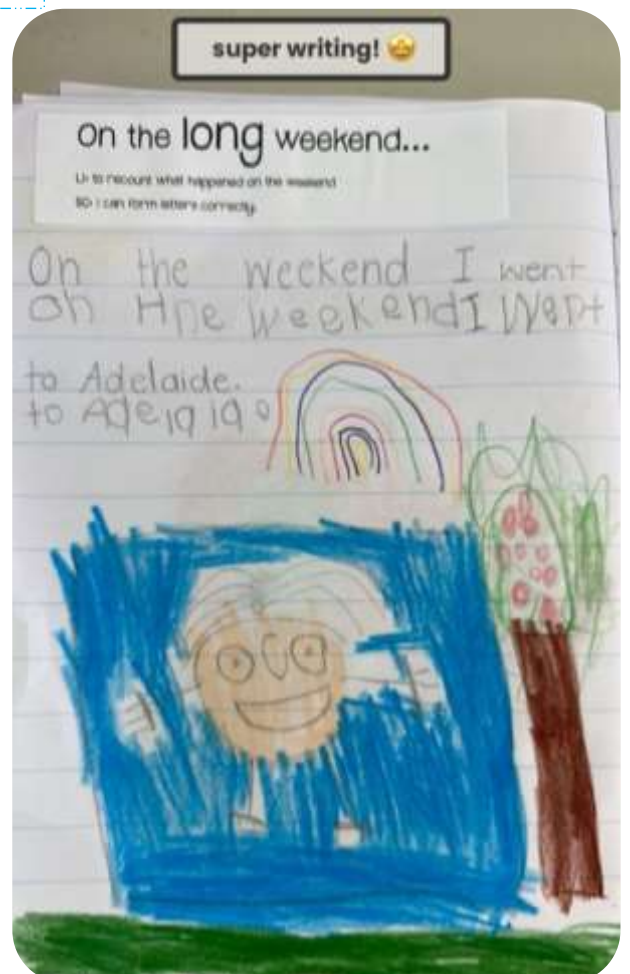 super writing! 🤩
On the long weekend...
LI: to recount what happened on the weekend
SC: I can form letters correctly.
On the weekend I went
on the weekend I Went
to Adelaide.
to Adelaide